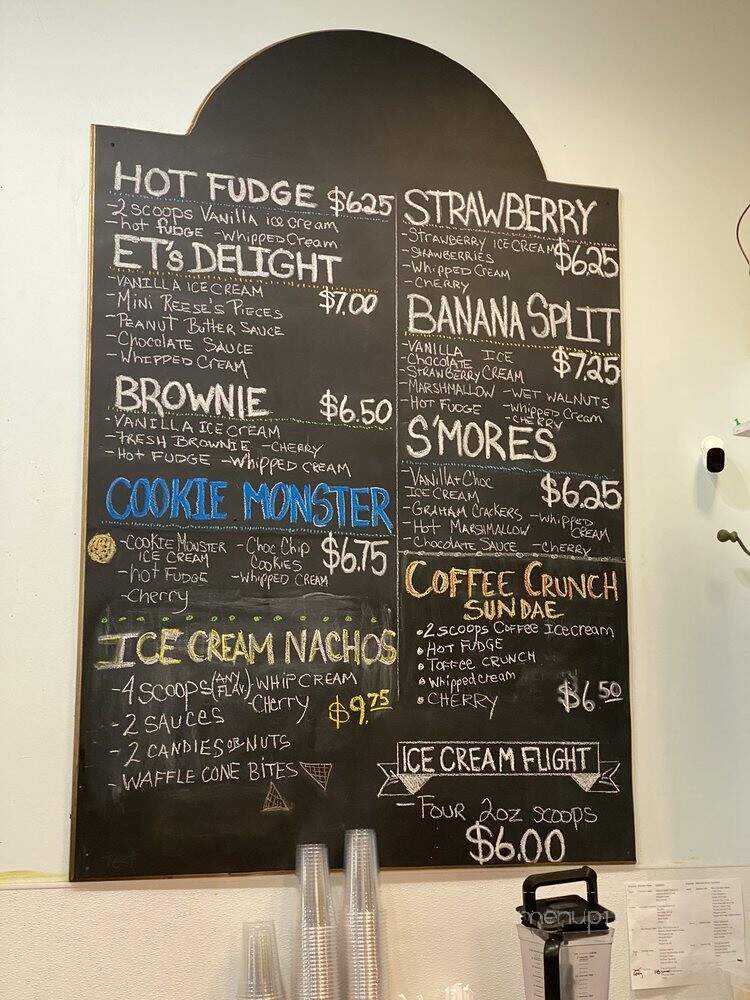 HOT FUDGE $6.25
-2 scoops Vanilla ice cream
-hot fudge -Whipped Cream
ET's DELIGHT
-VANILLA ICE CREAM $7.00
-Mini Reese's Pieces
-Peanut Butter Sauce
-Chocolate Sauce
-Whipped Cream
BROWNIE $6.50
-VANILLA ICE CREAM
-FRESH BROWNIE -CHERRY
-Hot FUDGE -Whipped CREAM
COOKIE MONSTER
-Cookie Monster ICE CREAM -Choc Chip Cookies $6.75
-hot FUDGE -Whipped CREAM
-Cherry
ICE CREAM NACHOS
-4 scoops (ANY FLAV.) -WHIP CREAM
-Cherry $9.75
-2 SAUCES
-2 CANDIES OR NUTS
-WAFFLE CONE BITES
STRAWBERRY
-STRAWBERRY ICE CREAM $6.25
-STRAWBERRIES
-Whipped Cream
-CHERRY
BANANA SPLIT
-VANILLA ICE $7.25
-Chocolate
-STRAWBERRY CREAM
-MARSHMALLOW -WET WALNUTS
-HOT FUDGE -Whipped Cream
-CHERRY
S'MORES
-Vanilla + Choc ICE CREAM $6.25
-GRAHAM CRACKERS -Whipped CREAM
-Hot MARSHMALLOW
-Chocolate SAUCE -CHERRY
COFFEE CRUNCH
SUNDAE
•2 scoops COFFEE ICE cream
•HOT FUDGE
•TOFFEE CRUNCH
•Whipped cream
•CHERRY $6.50
ICE CREAM FLIGHT
-FOUR 2oz scoops
$6.00
menupix